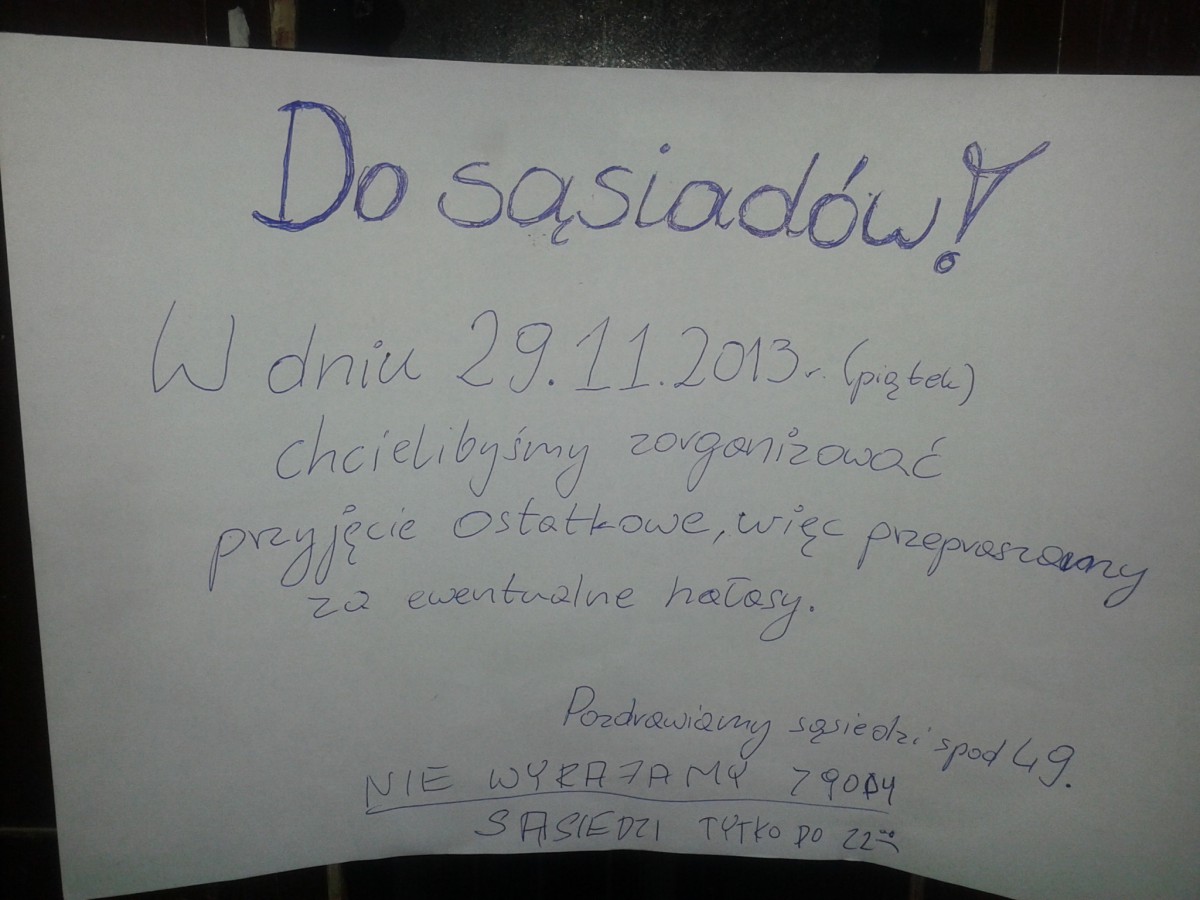 Do sąsiadów!
W dniu 29.11.2013r. (piątek)
chcielibyśmy zorganizować
przyjęcie Ostatkowe, więc przepraszamy
za ewentualne hałasy.
Pozdrawiamy sąsiedzi spod 49.
NIE WYRAŻAMY ZGODY
SĄSIEDZI TYTKO DO 22⁰⁰